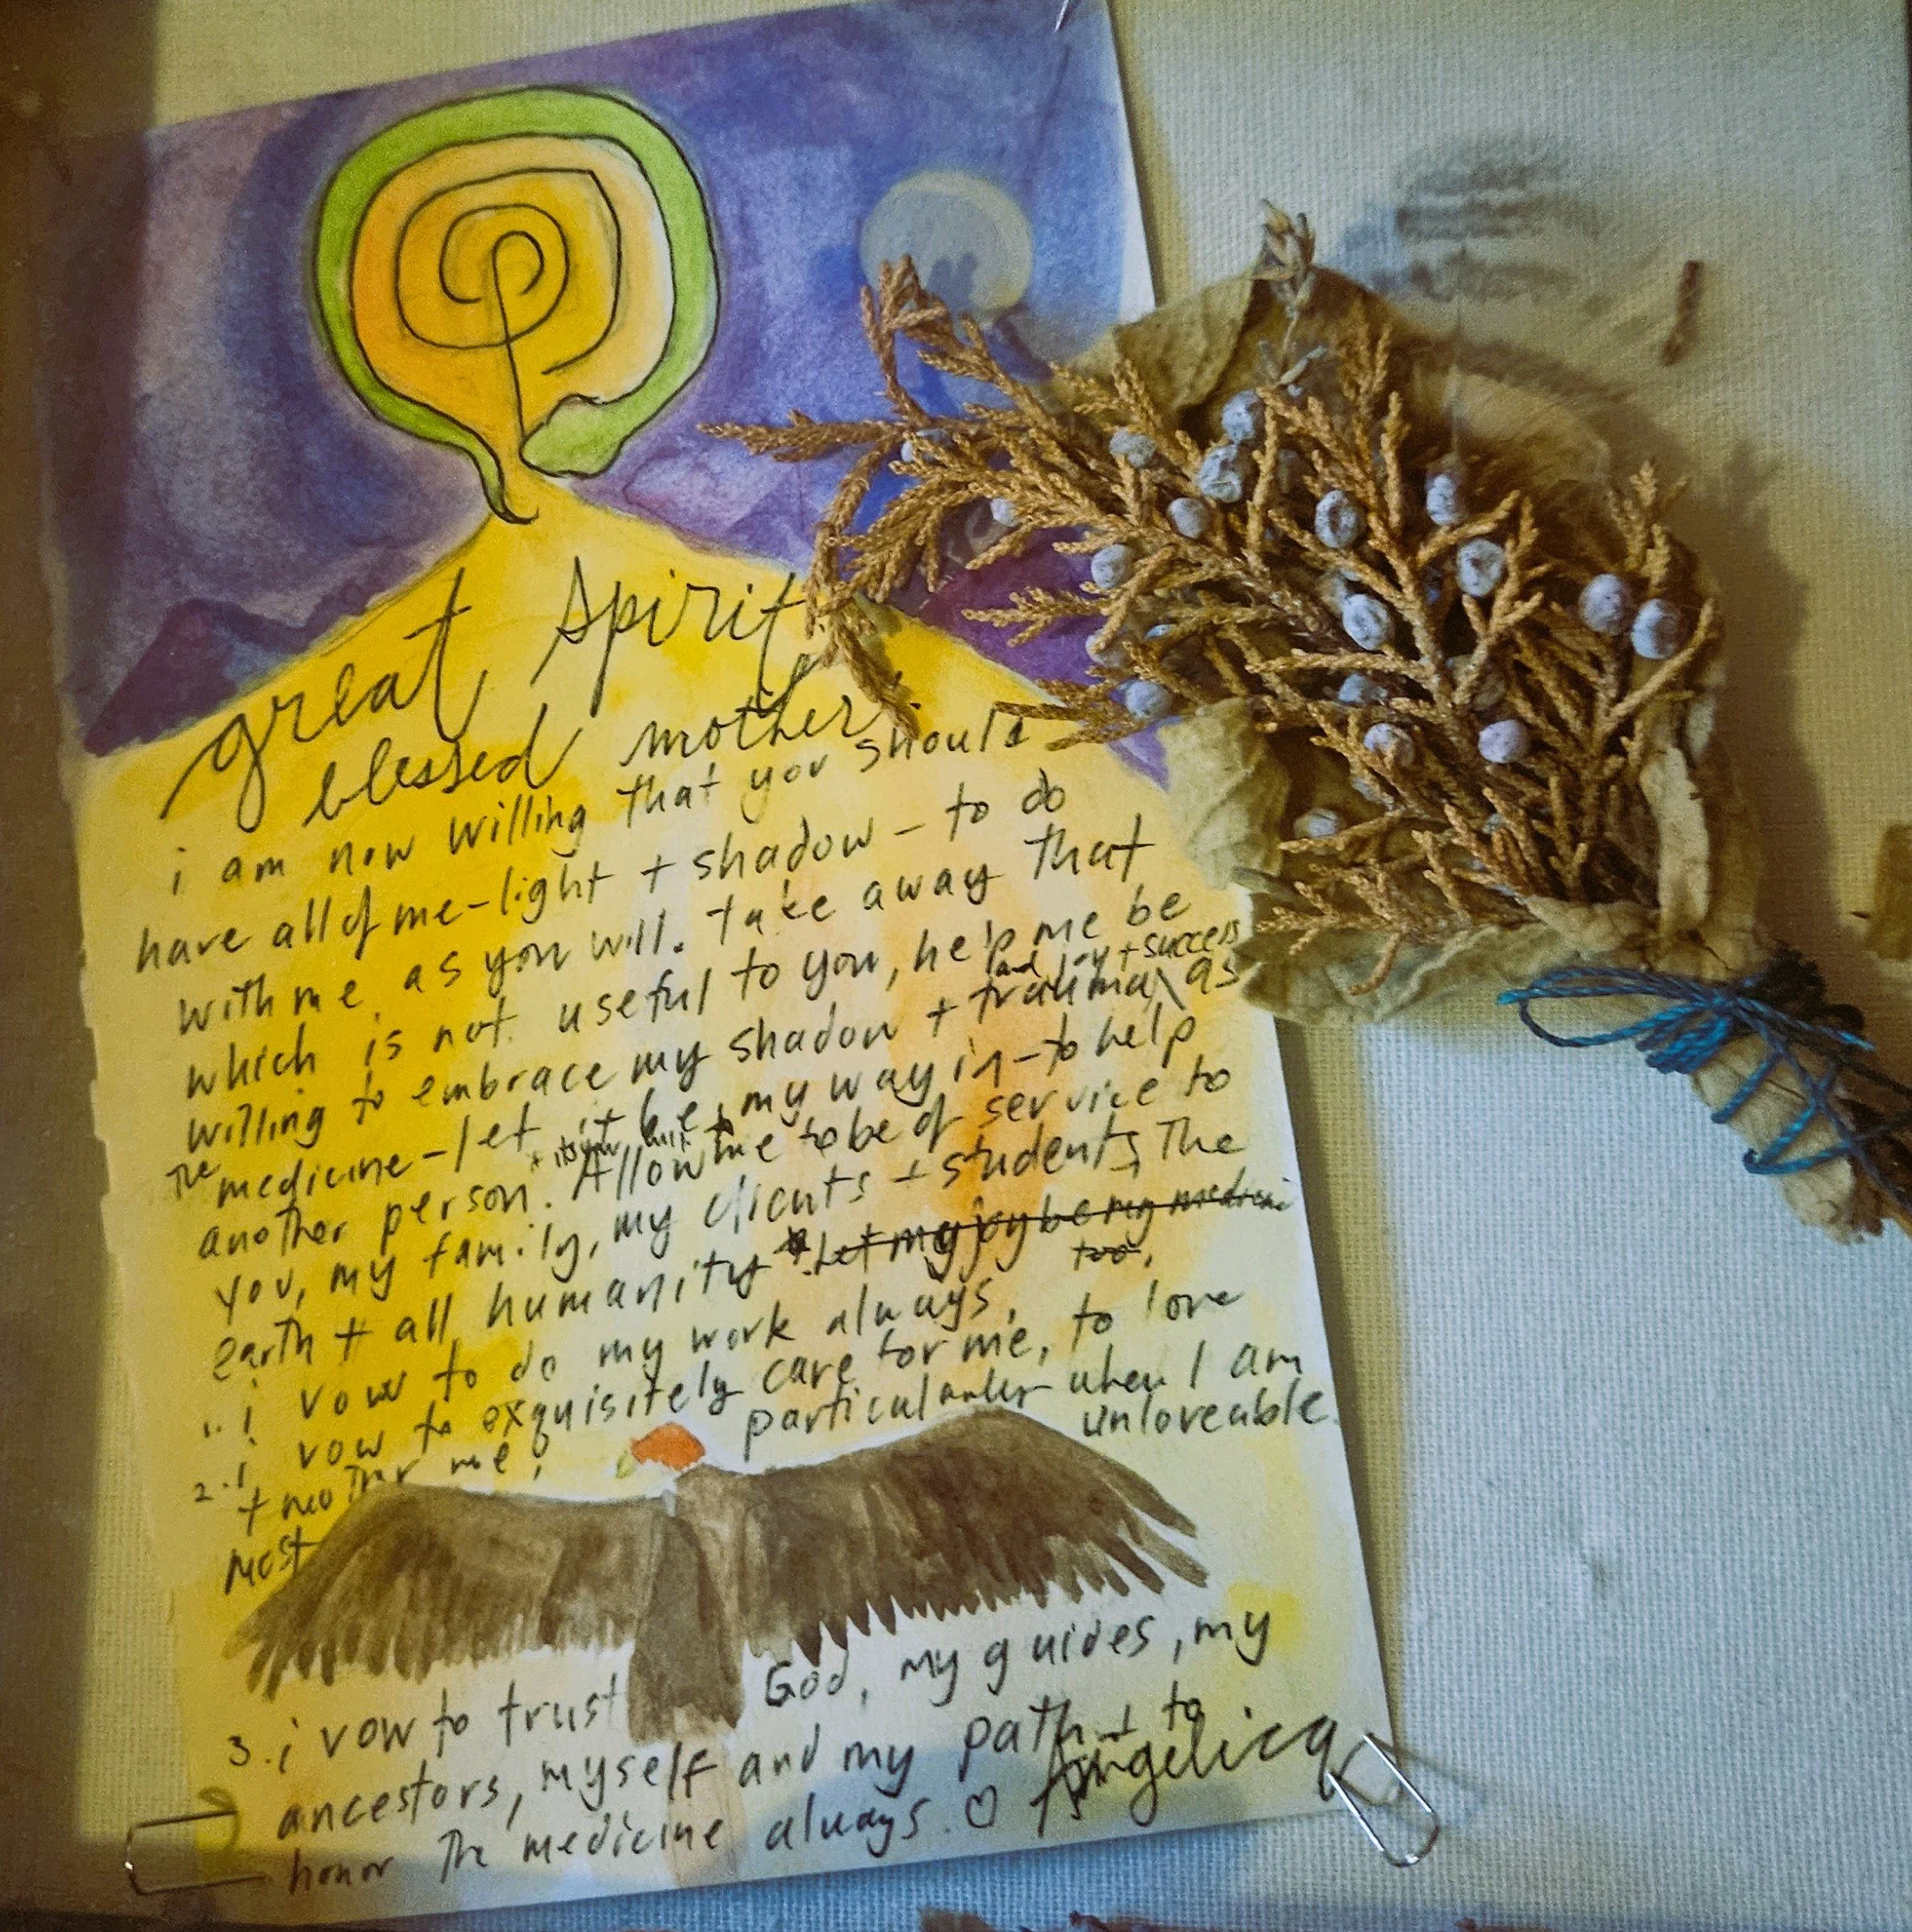 great spirit,
blessed mother:
i am now willing that you should
have all of me-light + shadow - to do
with me as you will. take away that
which is not useful to you, help me be
willing to embrace my shadow + trauma, and joy + success as
The medicine - let it be my way in - to help
another person. Allow me to be of service to
you, my family, my clients + students, The
earth + all humanity. Let my joy be my medicine
too.
1. i vow to do my work always.
2. i vow to exquisitely care for me, to love
+ mother me, particularly when I am
most unloveable.
3. i vow to trust God, my guides, my
ancestors, myself and my path + to
honor The medicine always. ♡ Angelica